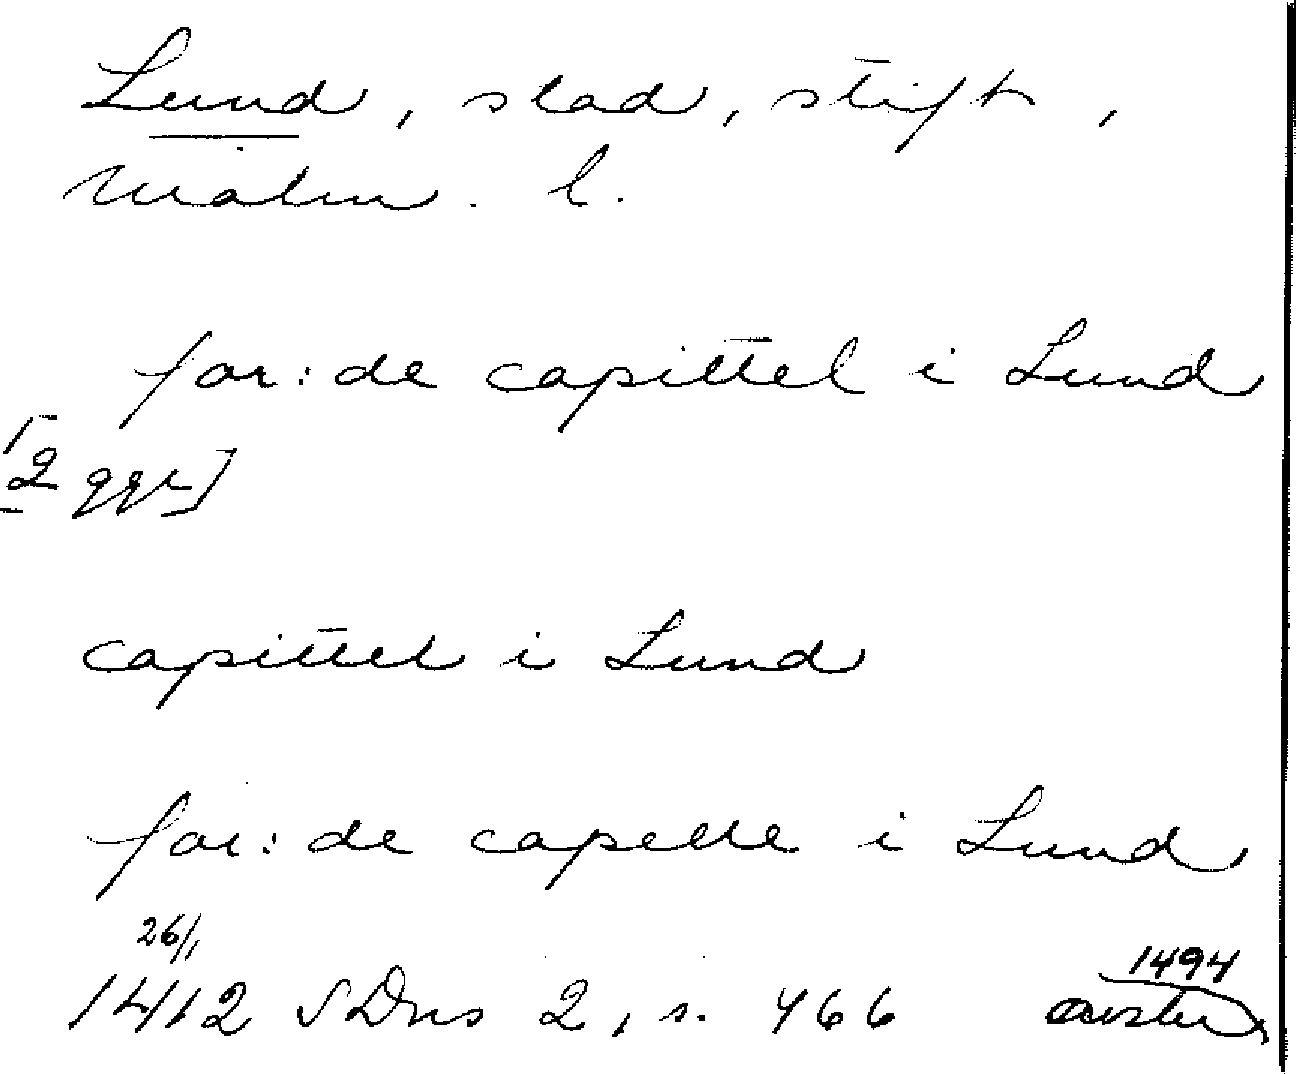 Lund, stad, stift,
Malm. l.
for: de capittel i Lund
[2 ggr]
capittel i Lund
for: de capelle i Lund
26/1
1412 SDns 2, s. 466
1494
avskr